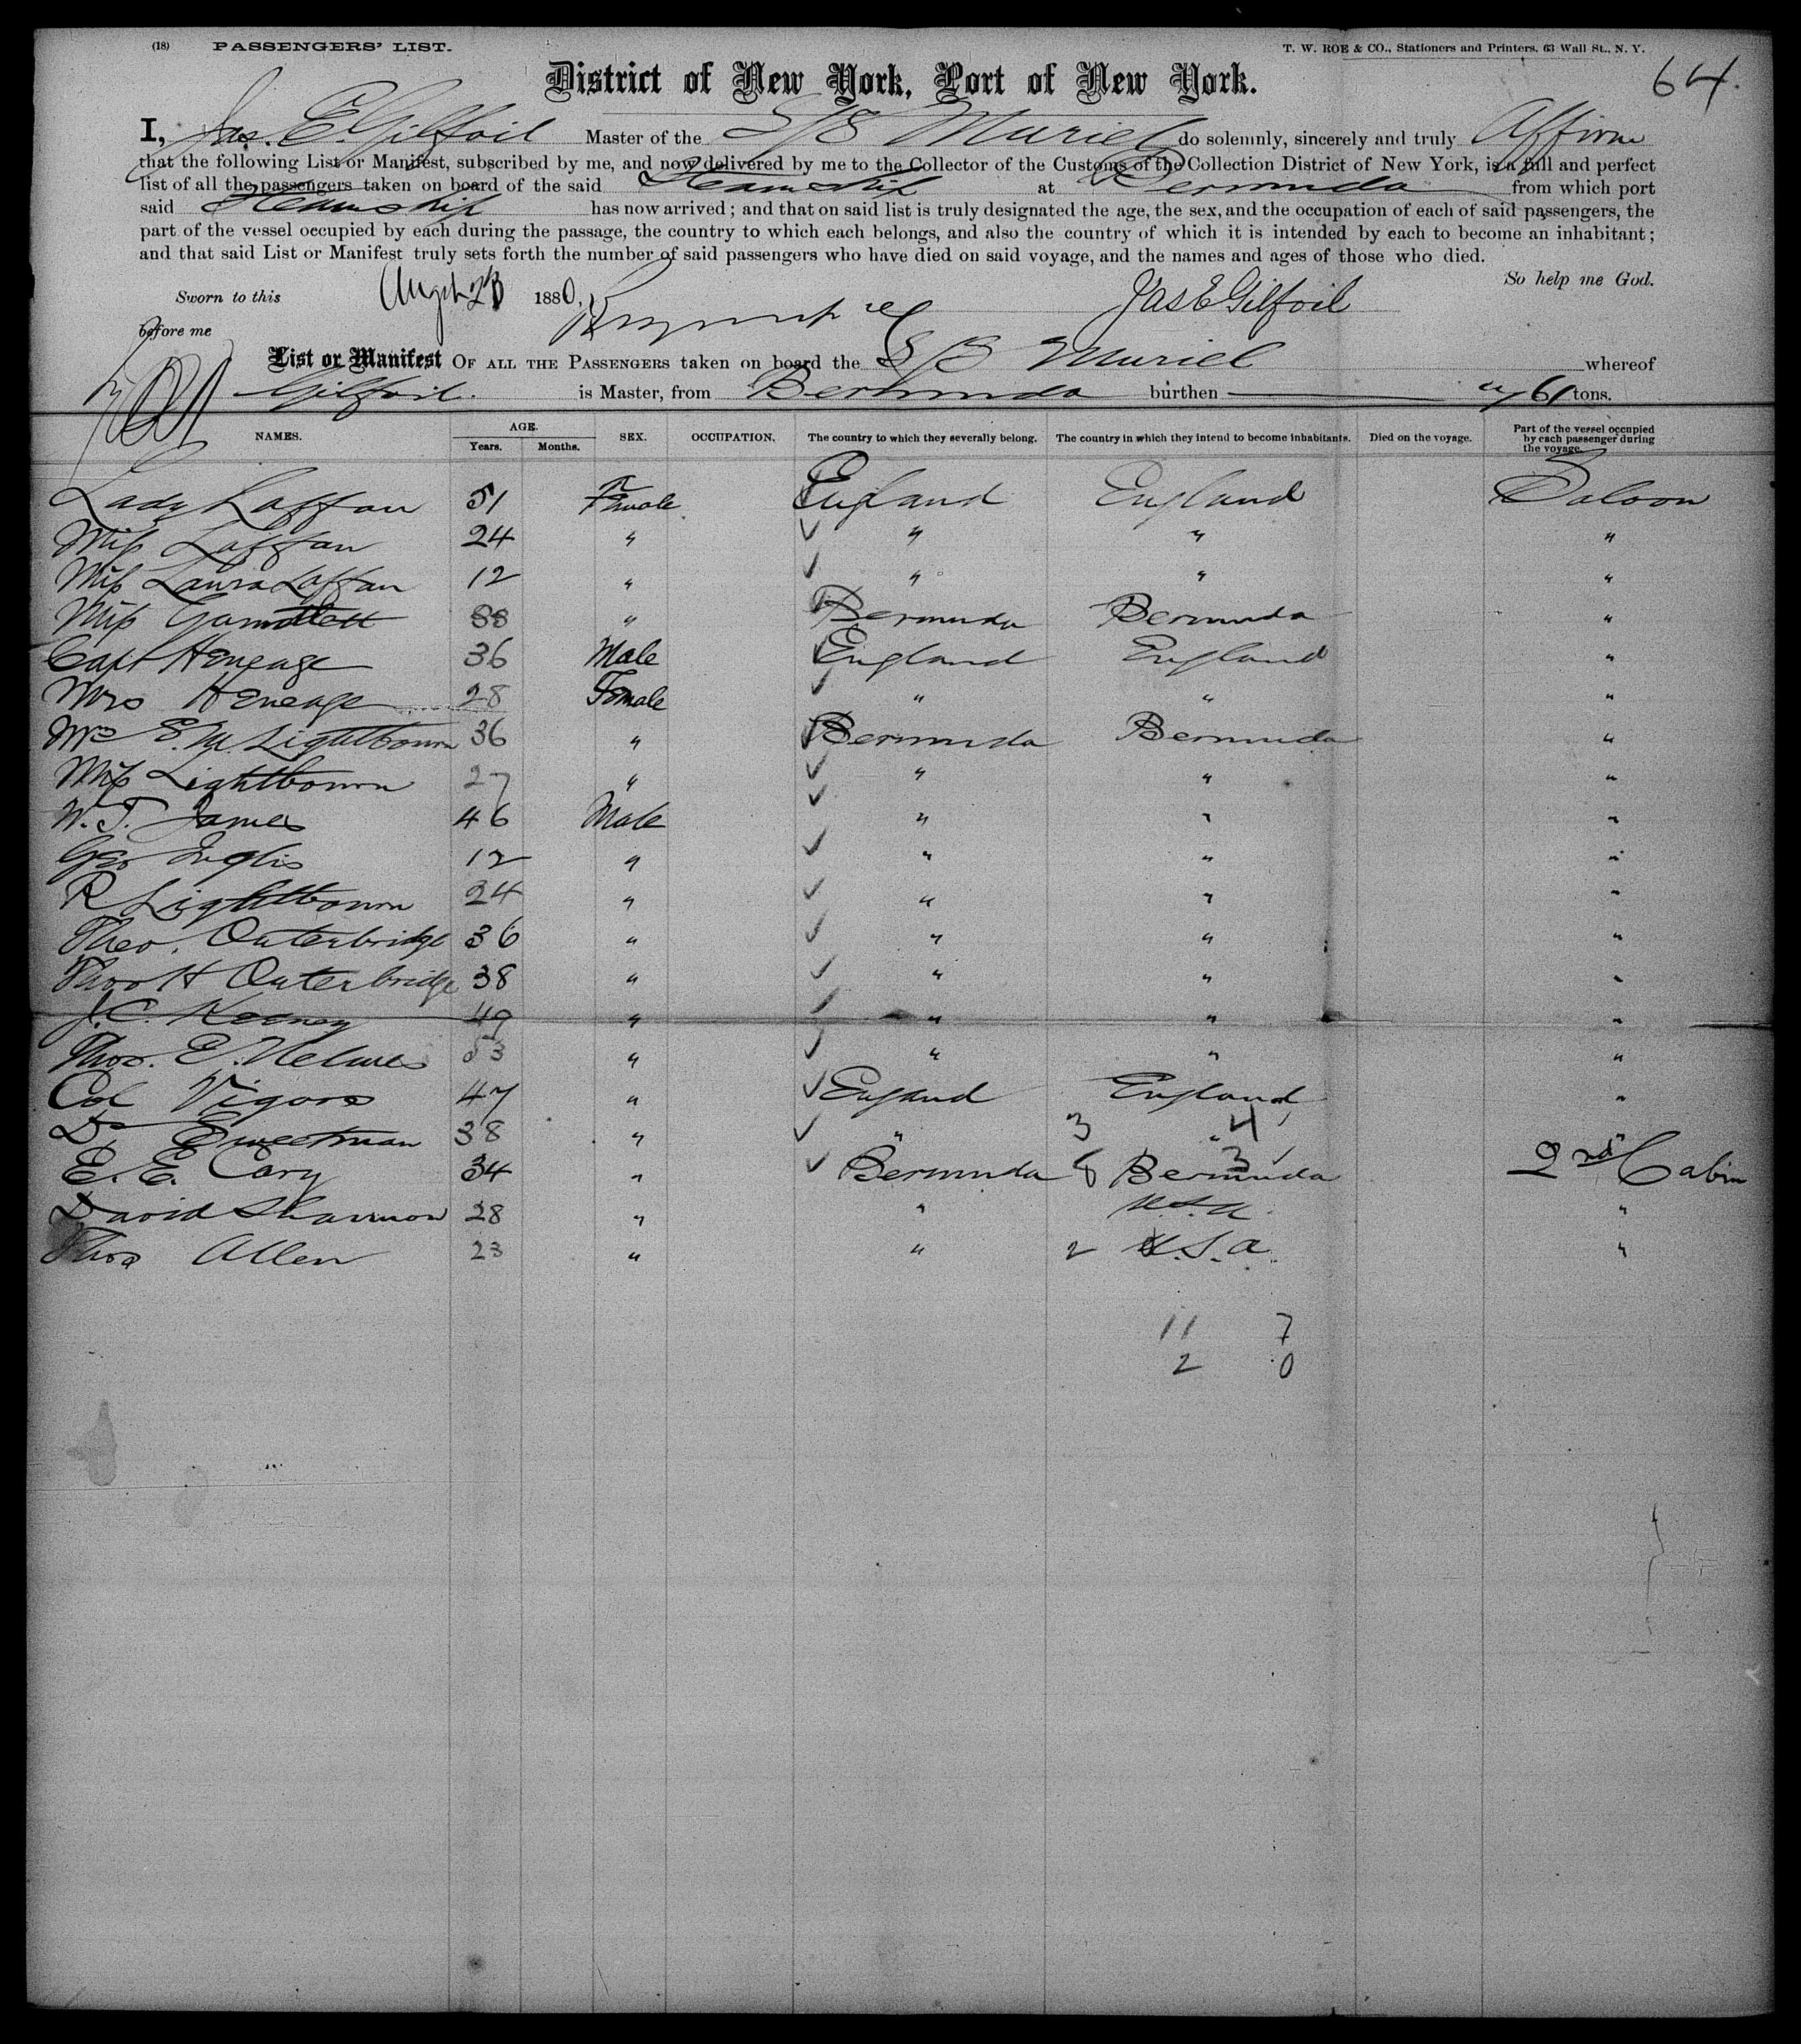 (18) PASSENGERS' LIST. T. W. ROE & CO., Stationers and Printers, 63 Wall St., N. Y.
64.
District of New York, Port of New York.
I, Jas. E. Gilfoil Master of the S/S Muriel do solemnly, sincerely and truly Affirm
that the following List or Manifest, subscribed by me, and now delivered by me to the Collector of the Customs of the Collection District of New York, is a full and perfect
list of all the passengers taken on board of the said Steamship at Bermuda from which port
said Steamship has now arrived; and that on said list is truly designated the age, the sex, and the occupation of each of said passengers, the
part of the vessel occupied by each during the passage, the country to which each belongs, and also the country of which it is intended by each to become an inhabitant;
and that said List or Manifest truly sets forth the number of said passengers who have died on said voyage, and the names and ages of those who died.
So help me God.
Sworn to this 1880, Jas E Gilfoil
before me
List or Manifest OF ALL THE PASSENGERS taken on board the S/S Muriel whereof
Gilfoil is Master, from Bermuda burthen 61 tons.
NAMES. AGE. Years. Months. SEX. OCCUPATION. The country to which they severally belong. The country in which they intend to become inhabitants. Died on the voyage. Part of the vessel occupied by each passenger during the voyage.
Lady Laffan 51 Female England England Saloon
Miss Laffan 24 " " " "
Miss Laura Laffan 12 " " " "
Miss 38 " Bermuda Bermuda "
Capt Heneage 36 Male England England "
Mrs Heneage 28 Female " " "
Mrs E. M. Lightbourn 36 " Bermuda Bermuda "
Miss Lightbourn 27 " " " "
W. T. James 46 Male " " "
Geo Inglis 12 " " " "
R Lightbourn 24 " " " "
Theo. Outerbridge 36 " " " "
Thos H Outerbridge 38 " " " "
J. C. Keeney 49 " " " "
Thos. E. 53 " " " "
Col Vigors 47 " England England "
Dr Sweetman 38 " " 3 " 4 "
E. E. Cary 34 " Bermuda 8 Bermuda 3 2nd Cabin
David Shannon 28 " " U.S.A. "
Thos Allen 23 " " 2 U.S.A. "
11 7
2 0